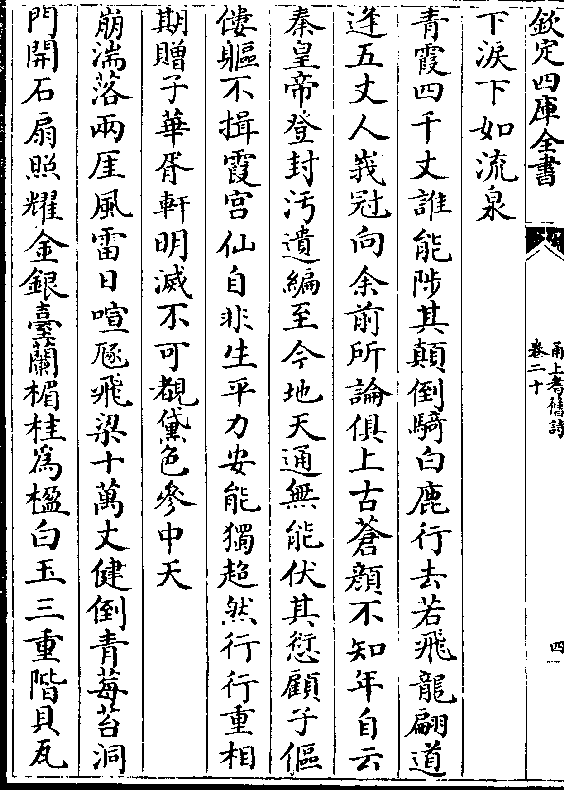 欽定四庫全書
甬上耆舊詩
卷二十
四
下淚下如流泉
青霞四千丈誰能陟其顛倒騎白鹿行去若飛龍翩道
逢五丈人峩冠向余前所論俱上古蒼顔不知年自云
秦皇帝登封汚遺編至今地天通無能伏其愆顧子傴
僂軀不揖霞宫仙自非生平力安能獨超然行行重相
期贈子華胥軒明滅不可覩黛色參中天
崩湍落兩厓風雷日喧豗飛梁十萬丈健倒青莓苔洞
門開石扇照耀金銀臺蘭楣桂為楹白玉三重階具瓦